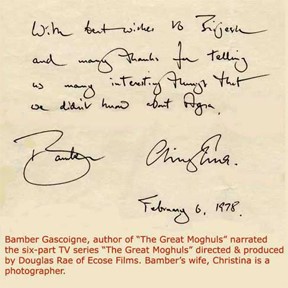 With best wishes to Brijesh
and many thanks for telling
us many interesting things that
we didn't know about Agra.
Bamber Christina.
February 6, 1978.
Bamber Gascoigne, author of "The Great Moghuls" narrated
the six-part TV series "The Great Moghuls" directed & produced
by Douglas Rae of Ecose Films. Bamber's wife, Christina is a
photographer.